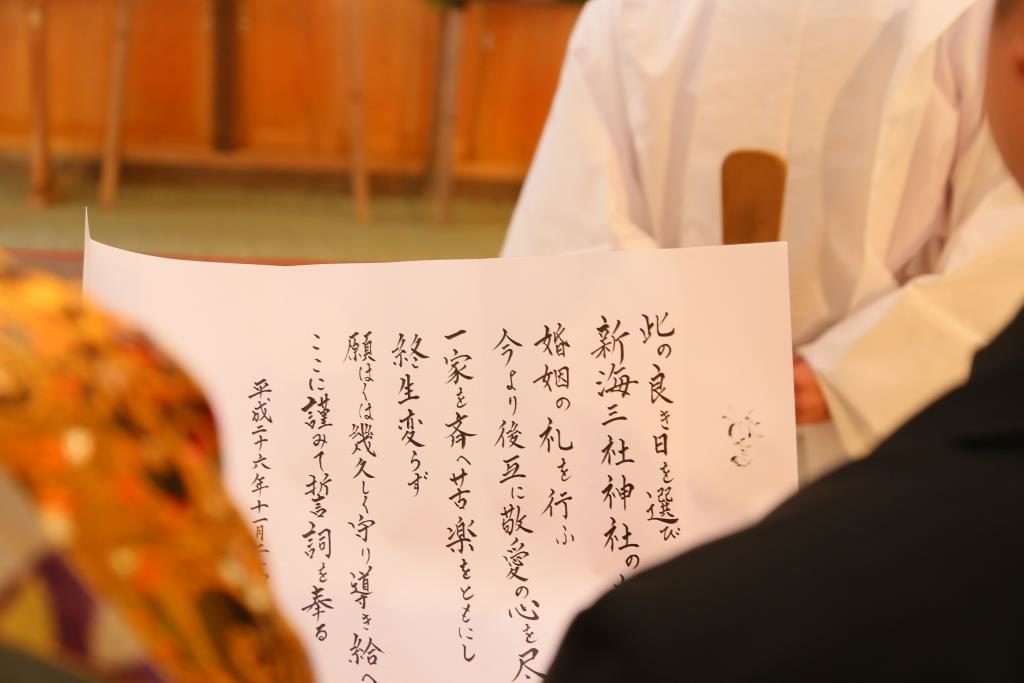 此の良き日を選び
新海三社神社の
婚姻の礼を行ふ
今より後互に敬愛の心を尽
一家を斉へ苦楽をともにし
終生変らず
願はくは幾久しく守り導き給へ
ここに謹みて誓詞を奉る
平成二十六年十一月二